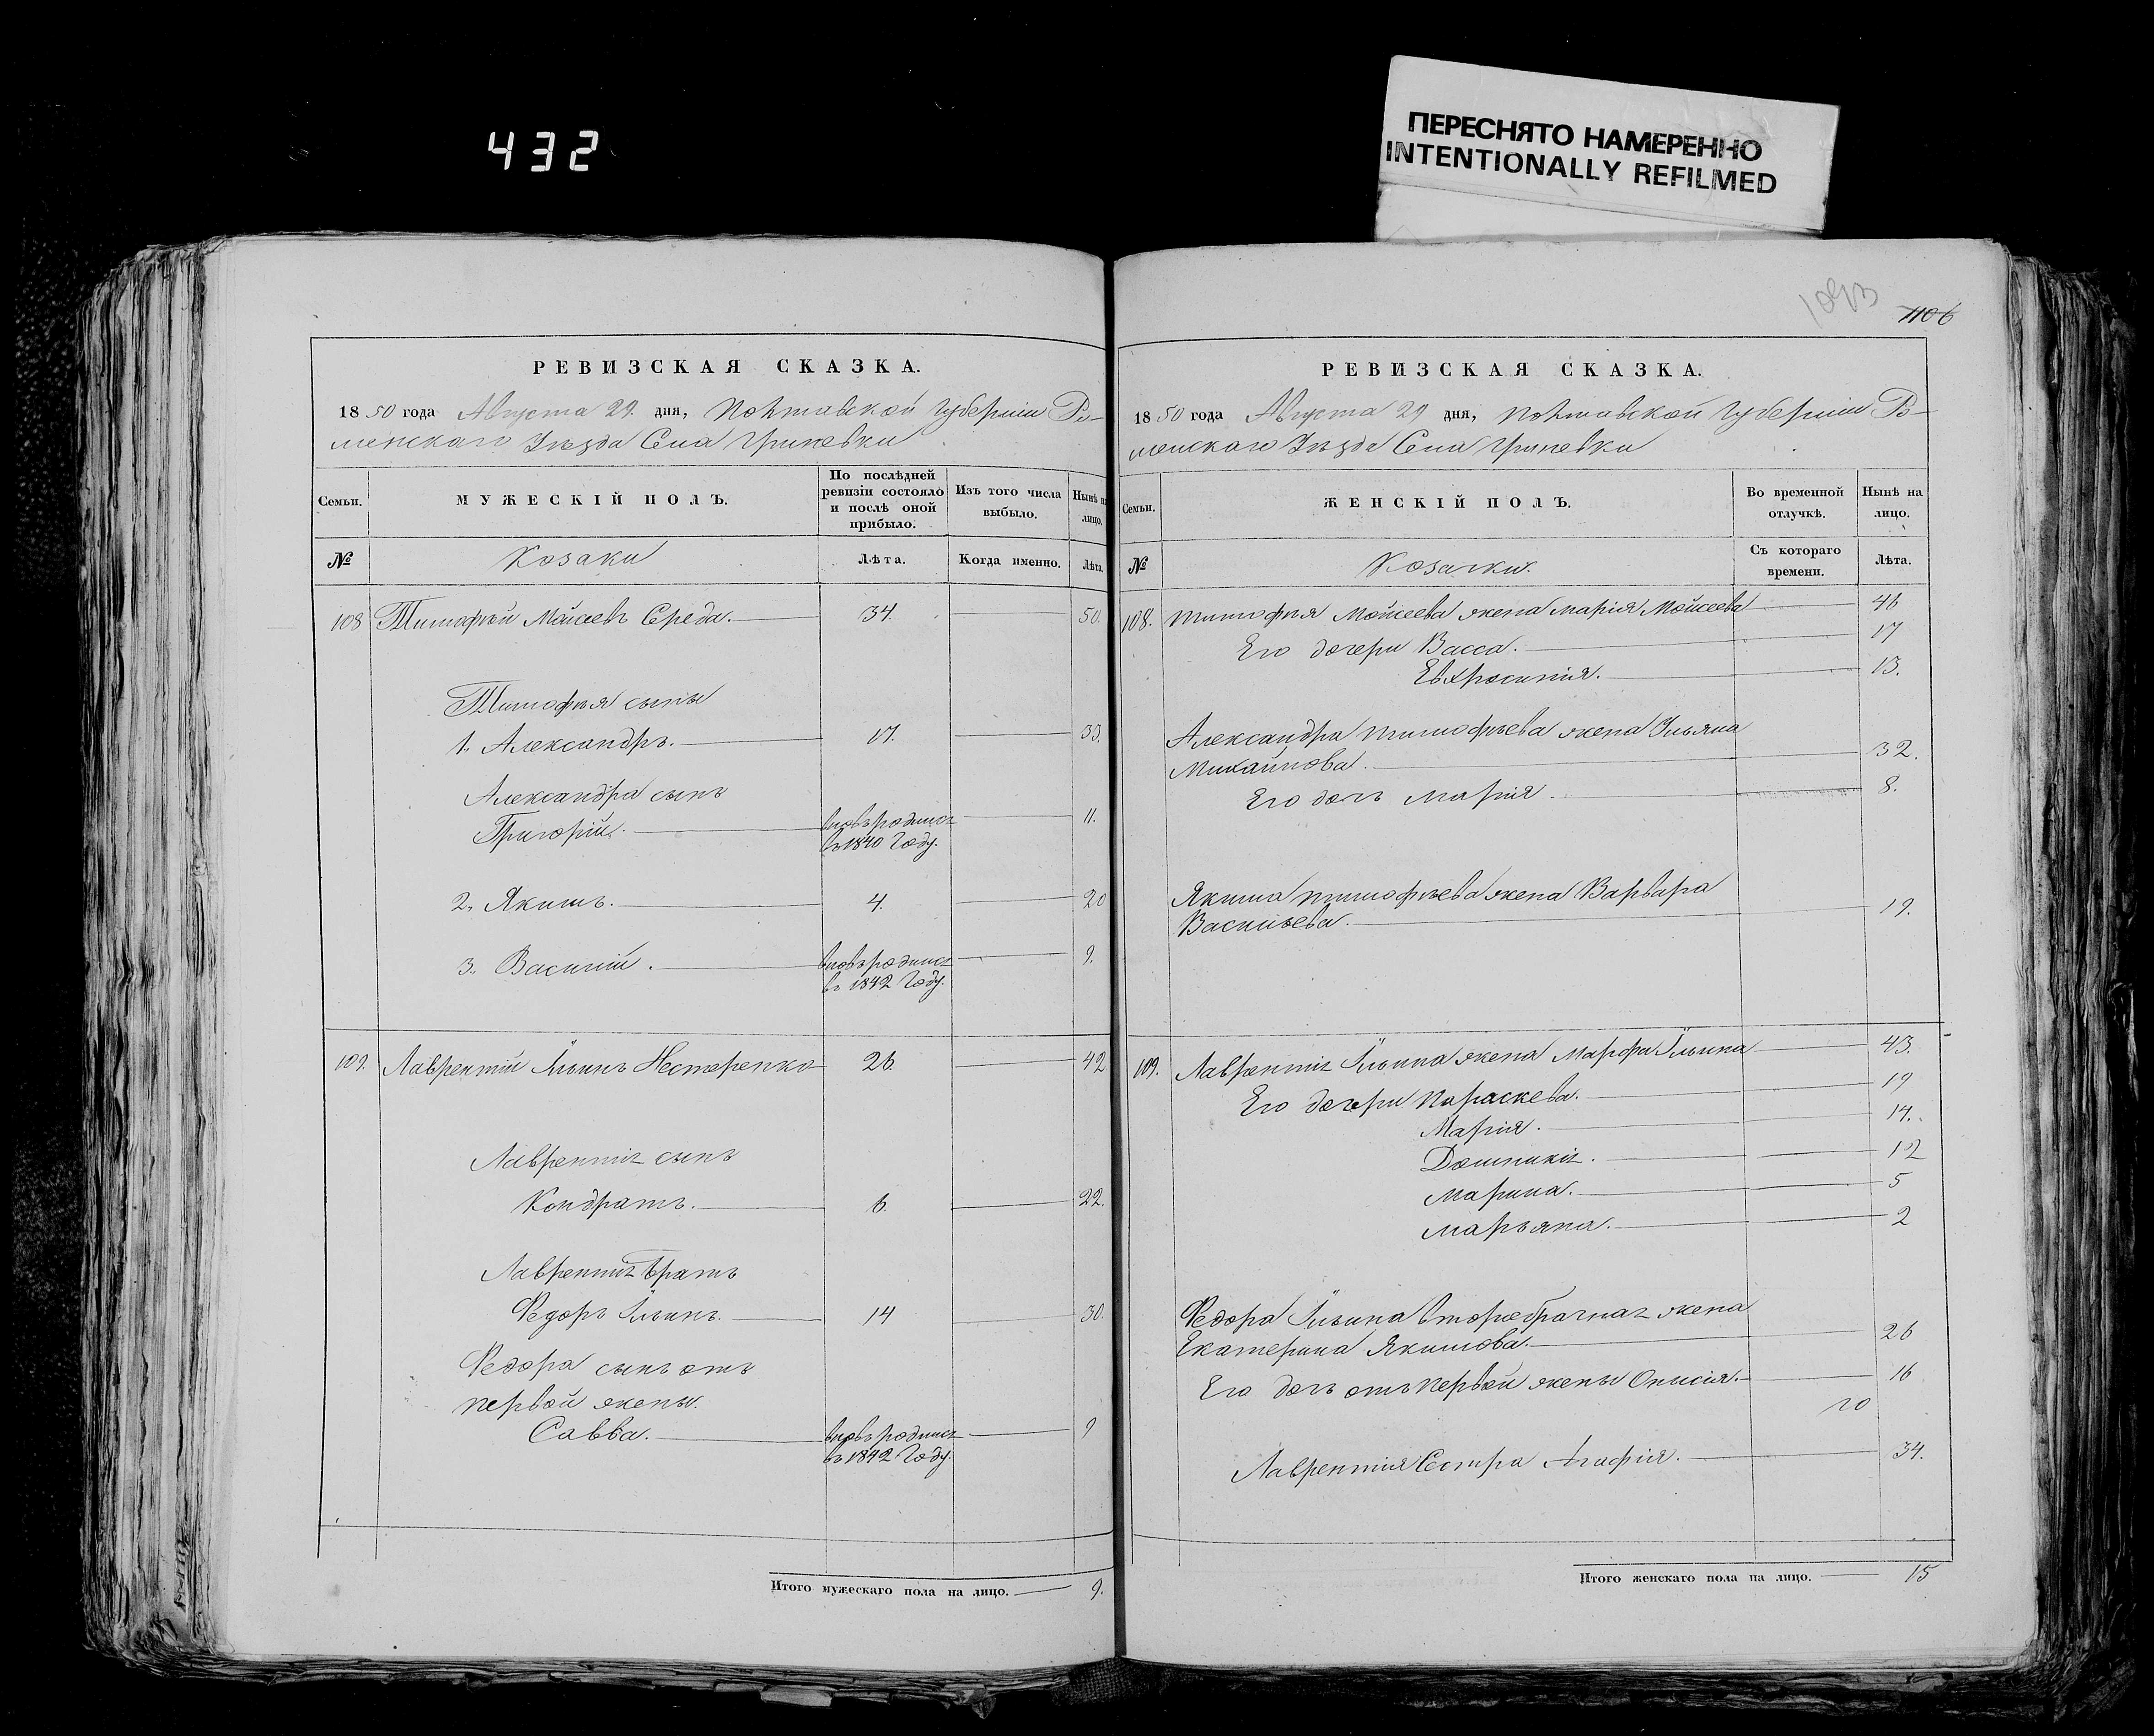 432
ПЕРЕСНЯТО НАМЕРЕННО
INTENTIONALLY REFILMED
1106
РЕВИЗСКАЯ СКАЗКА.
1850 года Августа 29. дня, Полтавской Губерніи Ро-
менскаго Уѣзда Села Гриневки
Семьи.
МУЖЕСКІЙ ПОЛЪ.
По послѣдней ревизіи состояло и послѣ оной прибыло.
Изъ того числа выбыло.
Нынѣ на лицо.
№
Козаки
Лѣта.
Когда именно.
Лѣта.
108 Тимофѣй Мойсеевъ Середа. 34. 50.
Тимофѣя сыны
1. Александръ. 17. 33.
Александра сынъ
Григорій. вновь родился 11.
въ 1840 Году.
2. Якимъ. 4. 20
3. Василій. вновь родился 9.
въ 1842 Году.
109. Лаврентій Ильинъ Нестеренко 26. 42
Лаврентія сынъ
Кондратъ. 6. 22.
Лаврентія братъ
Федоръ Ильинъ. 14 30.
Федора сынъ отъ
первой жены.
Савва. вновь родился 9
въ 1842 Году.
Итого мужескаго пола на лицо. 9.
РЕВИЗСКАЯ СКАЗКА.
1850 года Августа 29 дня, Полтавской Губерніи Ро-
менскаго Уѣзда Села Гриневки
Семьи.
ЖЕНСКІЙ ПОЛЪ.
Во временной отлучкѣ.
Нынѣ на лицо.
№
Козачки.
Съ котораго времени.
Лѣта.
108. Тимофѣя Мойсеева жена Марія Мойсеева 46
Его дочери Васса. 17
Евхросинія. 13.
Александра Тимофѣева жена Ульяна
Михайлова. 32.
Его дочь Марія. 8.
Якима Тимофѣева жена Варвара
Васильева. 19.
109. Лаврентія Ильина жена Марфа Ильина 43.
Его дочери Параскева. 19
Марія. 14.
Домникія. 12
Марина. 5
Марьяна. 2
Федора Ильина второбрачная жена
Екатерина Якимова. 26
Его дочь отъ первой жены Онисія. 16
10
Лаврентія Сестра Агафія. 34.
Итого женскаго пола на лицо. 15